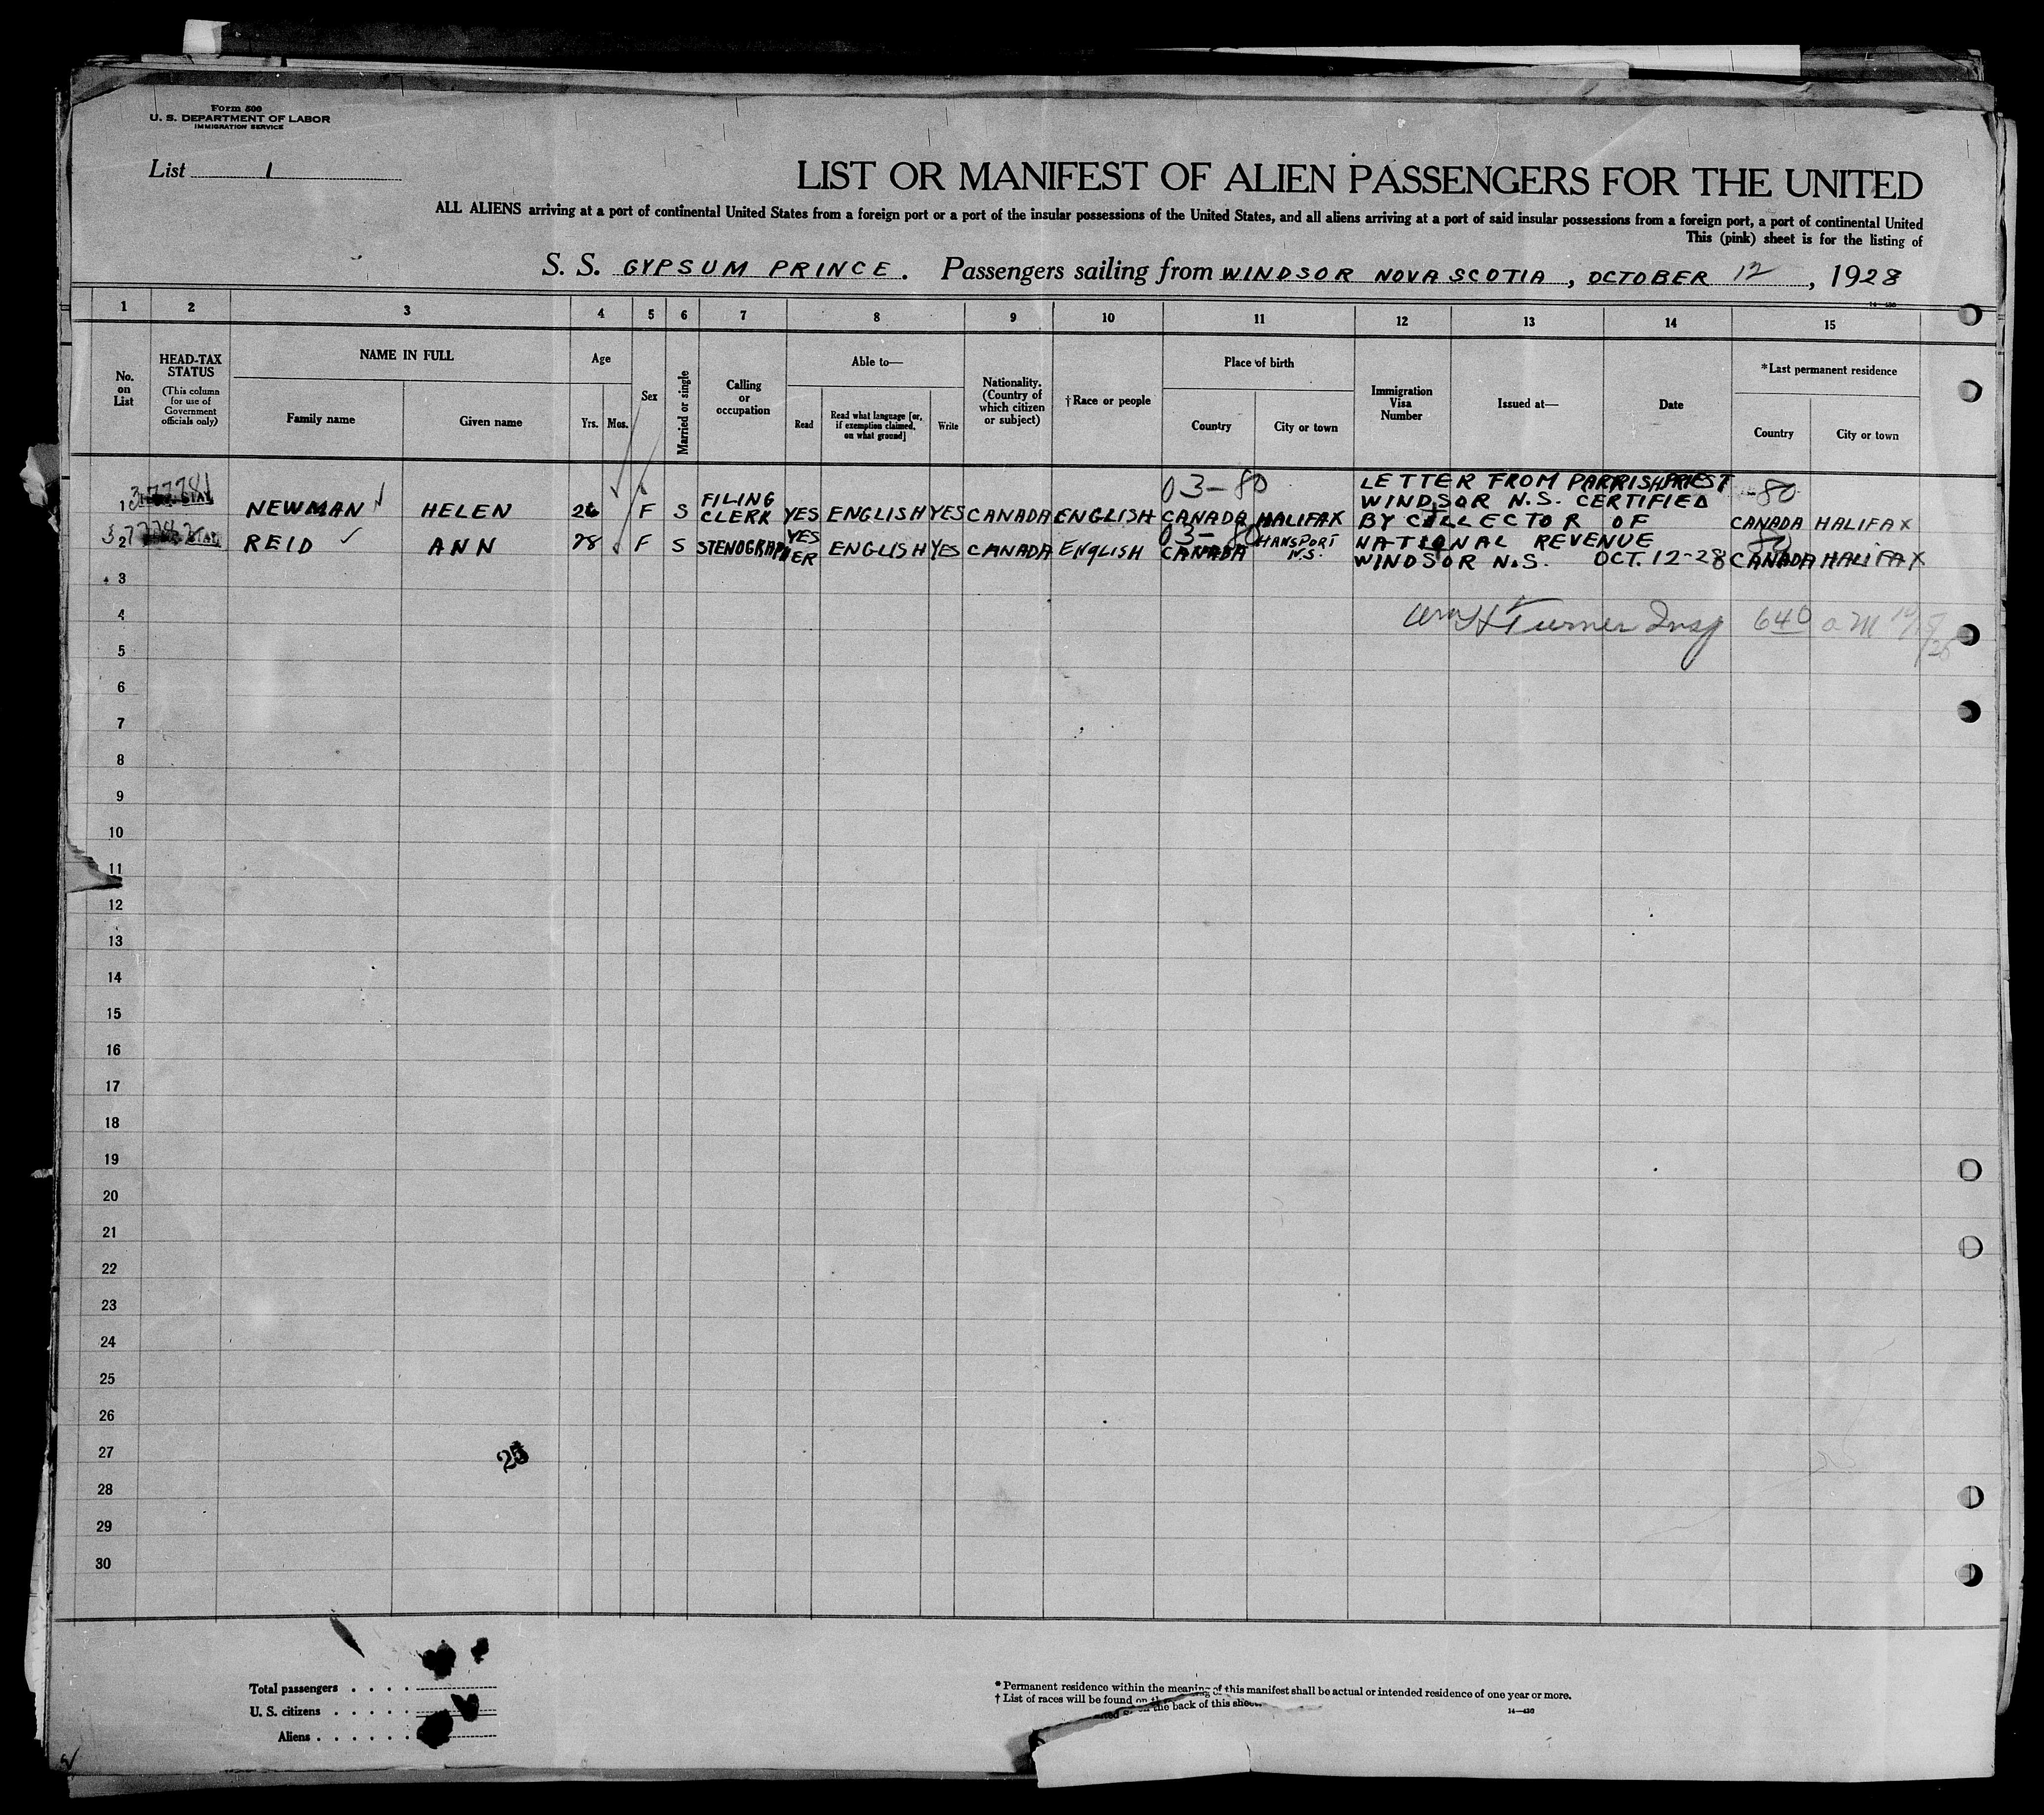 Form 500
U. S. DEPARTMENT OF LABOR
IMMIGRATION SERVICE
List 1
LIST OR MANIFEST OF ALIEN PASSENGERS FOR THE UNITED
ALL ALIENS arriving at a port of continental United States from a foreign port or a port of the insular possessions of the United States, and all aliens arriving at a port of said insular possessions from a foreign port, a port of continental United
This (pink) sheet is for the listing of
S. S. GYPSUM PRINCE. Passengers sailing from WINDSOR NOVA SCOTIA, OCTOBER 12, 1928
14—430
1 2 3 4 5 6 7 8 9 10 11 12 13 14 15
No. on List
HEAD-TAX STATUS
(This column for use of Government officials only)
NAME IN FULL
Family name
Given name
Age
Yrs.
Mos.
Sex
Married or single
Calling or occupation
Able to—
Read
Read what language [or, if exemption claimed, on what ground]
Write
Nationality. (Country of which citizen or subject)
†Race or people
Place of birth
Country
City or town
Immigration Visa Number
Issued at—
Date
*Last permanent residence
Country
City or town
1 NEWMAN HELEN 26 F S FILING CLERK YES ENGLISH YES CANADA ENGLISH 03-80 CANADA HALIFAX -80 CANADA HALIFAX
2 REID ANN 28 F S STENOGRAPHER YES ENGLISH YES CANADA ENGLISH 03-80 CANADA HANSPORT N.S. 80 CANADA HALIFAX
LETTER FROM PARRISH PRIEST
WINDSOR N.S. CERTIFIED
BY COLLECTOR OF
NATIONAL REVENUE
WINDSOR N.S. OCT. 12-28
3
4 Wm H Turner Insp 640 a M
5
6
7
8
9
10
11
12
13
14
15
16
17
18
19
20
21
22
23
24
25
26
27
28
29
30
25
Total passengers
U. S. citizens
Aliens
* Permanent residence within the meaning of this manifest shall be actual or intended residence of one year or more.
† List of races will be found on the back of this sheet
14—430